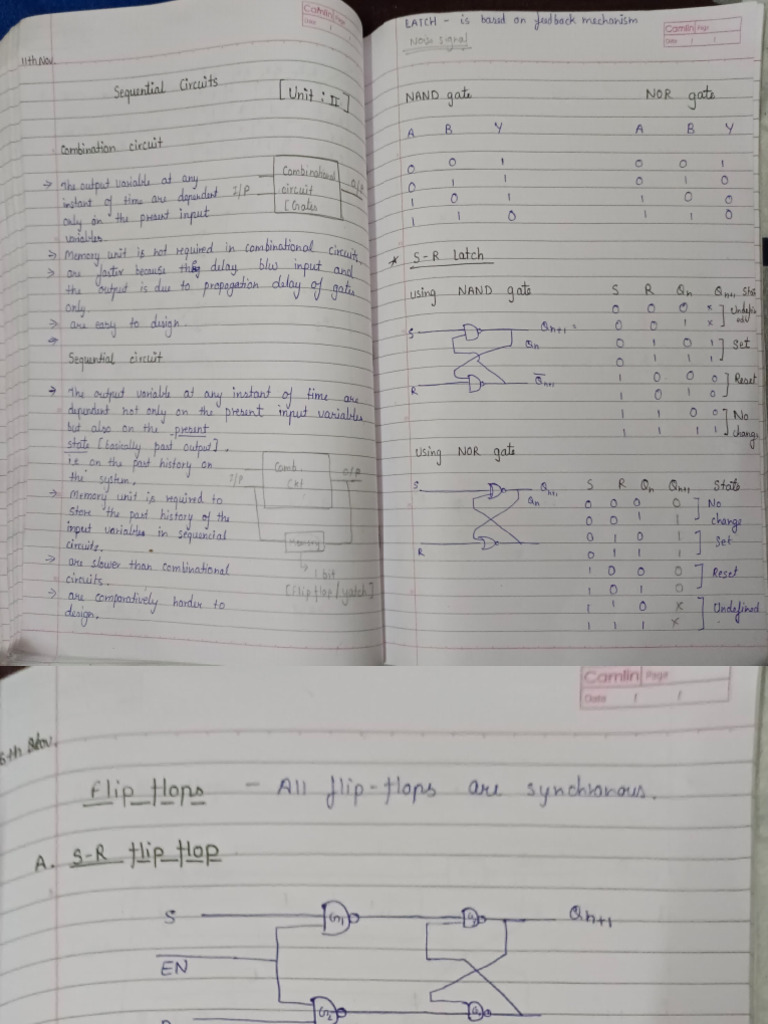 Camlin Page
Date / /
11th Nov.
Sequential Circuits
[Unit : II]
Combination circuit
→ The output variable at any
instant of time are dependent
only on the present input
variables.
I/P
Combinational
circuit
[Gates
O/P
→ Memory unit is not required in combinational circuit.
→ are faster because the delay b/w input and
the output is due to propogation delay of gates
only.
→ are easy to design.
→
Sequential circuit
→ The output variable at any instant of time are
dependent not only on the present input variables,
but also on the present
state [basically past output].
i.e on the past history on
the system.
I/P
Comb.
CKt
O/P
→ Memory unit is required to
store the past history of the
input variables in sequencial
circuits.
Memory
1 bit
[Flip flop / yatch]
→ are slower than combinational
circuits.
→ are comparatively harder to
design.
LATCH - is based on feedback mechanism
Camlin Page
Date / /
NAND gate
A B Y
0 0 1
0 1 1
1 0 1
1 1 0
NOR gate
A B Y
0 0 1
0 1 0
1 0 0
1 1 0
* S-R latch
using NAND gate
S
R
Qn+1
Qn
Q̅n+1
S R Qn Qn+1 State
0 0 0 x
0 0 1 x
0 1 0 1 ] Set
0 1 1 1
1 0 0 0 ] Reset
1 0 1 0
1 1 0 0 ] No
1 1 1 1 change
using NOR gate
S
R
Qn+1
Qn
S R Qn Qn+1 State
0 0 0 0 ] No
0 0 1 1 change
0 1 0 1 ] Set
0 1 1 1
1 0 0 0 ] Reset
1 0 1 0
1 1 0 x ] Undefined
1 1 1 x
Camlin Page
Date / /
Flip flops - All flip-flops are synchronous.
A. S-R flip flop
S
G1
Qn+1
EN
G2